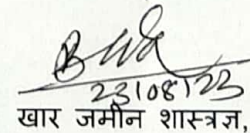 23/08/23
खार जमीन शास्त्रज्ञ,